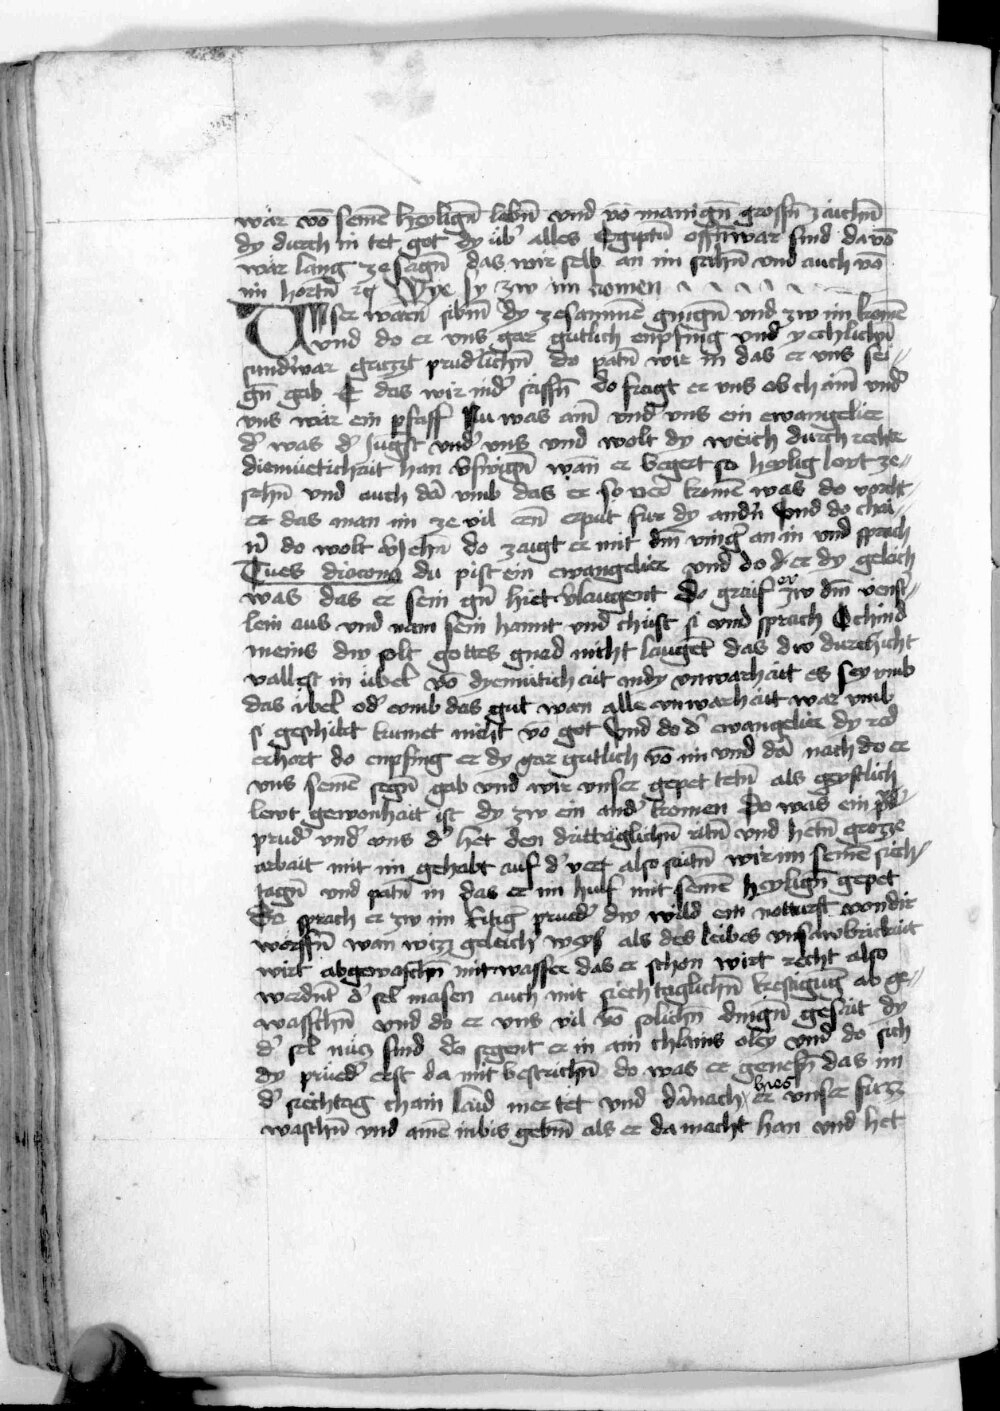 wär vō seinē heyligē lebn̄ vnd vō manign̄ grossn̄ zaichn̄
dy durch in tet got dy üb' alles Egiptn̄ offn̄war sind davō
wär lang ze sagn̄ das wir selb an im sachn̄ vnd auch vō
im hortn̄ Wye sy zw im komen
Vnser warn̄ sibn̄ dy zesammē gingn̄ vnd zw im komē
vnd do er vns gar gutlich enpfing vnd yechlichn̄
sund'war gruzzt prud'lichn̄ do patn̄ wir in das er vns sei⸗
gn̄ gab E das wir nid' säzzn̄ do fragt er vns ob chainr̄ vnd'
vns wär ein pfaff Nu was ainr̄ vnd' vns ein ewangelier
d' was d' jugst vnd' vns vnd wolt dy weich durch rechte
diemuetichait han v'swign̄ wan̄ er begert so heylig lewt ze⸗
sehn̄ vnd auch dar̄ vmb das er so verr̄ komē was do vorcht⸗
er das man im ze vil ern̄ erput fur dy andn̄ Vnd do chai⸗
nr̄ do wolt v'jehn̄ do zaigt er mit dm̄ ving' an in vnd sprach
Tu es diacon9 du pist ein ewangelier vnd do d er dy geleich
was das er sein gn̄ hiet v'laugent Do graif er zw dm̄ venst⸗
lein aus vnd nam sein hannt vnd chüst si vnd sprach O chind
meins dw solt gottes gnad nicht laugē das dw durch icht
vallest in übel vō dyemütichait in dy vnwarhait es sey vmb
das übel od' vmb das gut wan alle vnwarhait war vmb
si geschikt kumet nicht vō got Vnd do d' ewangelier dy red
erhort do enpfing er dy gar gutlich vō im vnd dar̄ nach do er
vns seinē segn̄ gab vnd wir vnser gepet tetn̄ als geystlich
lewt gewonhait ist dy zw ein and' komen Do was ein
prud' vnd' vns d' het den drittäglichn̄ ritn̄ vnd hetn̄ grozze
arbait mit im gehabt auf d' vert also saitn̄ wir im seinē siech⸗
tagn̄ vnd patn̄ in das er im hulf mit seinē heylign̄ gepet
Do sprach er zw im sitig' prued' dw wild ein notturft von dir
worffn̄ wan wizz geleich weys als des leibes vnsawbrikait
wirt abgewaschn̄ mit wasser das er schon wirt recht also
werdn̄t d' sel masen auch mit siechtaglichn̄ kestigūg ab ge⸗
wasschn̄ vnd do er vns vil vō solichn̄ dingn̄ gesait dy
d' sel nücz sind do segent er in ain chlains oley vnd do sich
dy prued' erst da mit bestrichn̄ do was er genesn̄ das im
d' siechtag chain laid mer tet vnd dar̄nach hies er vnser füzz
waschn̄ vnd ainē inbis gebn̄ als er da macht han vnd het